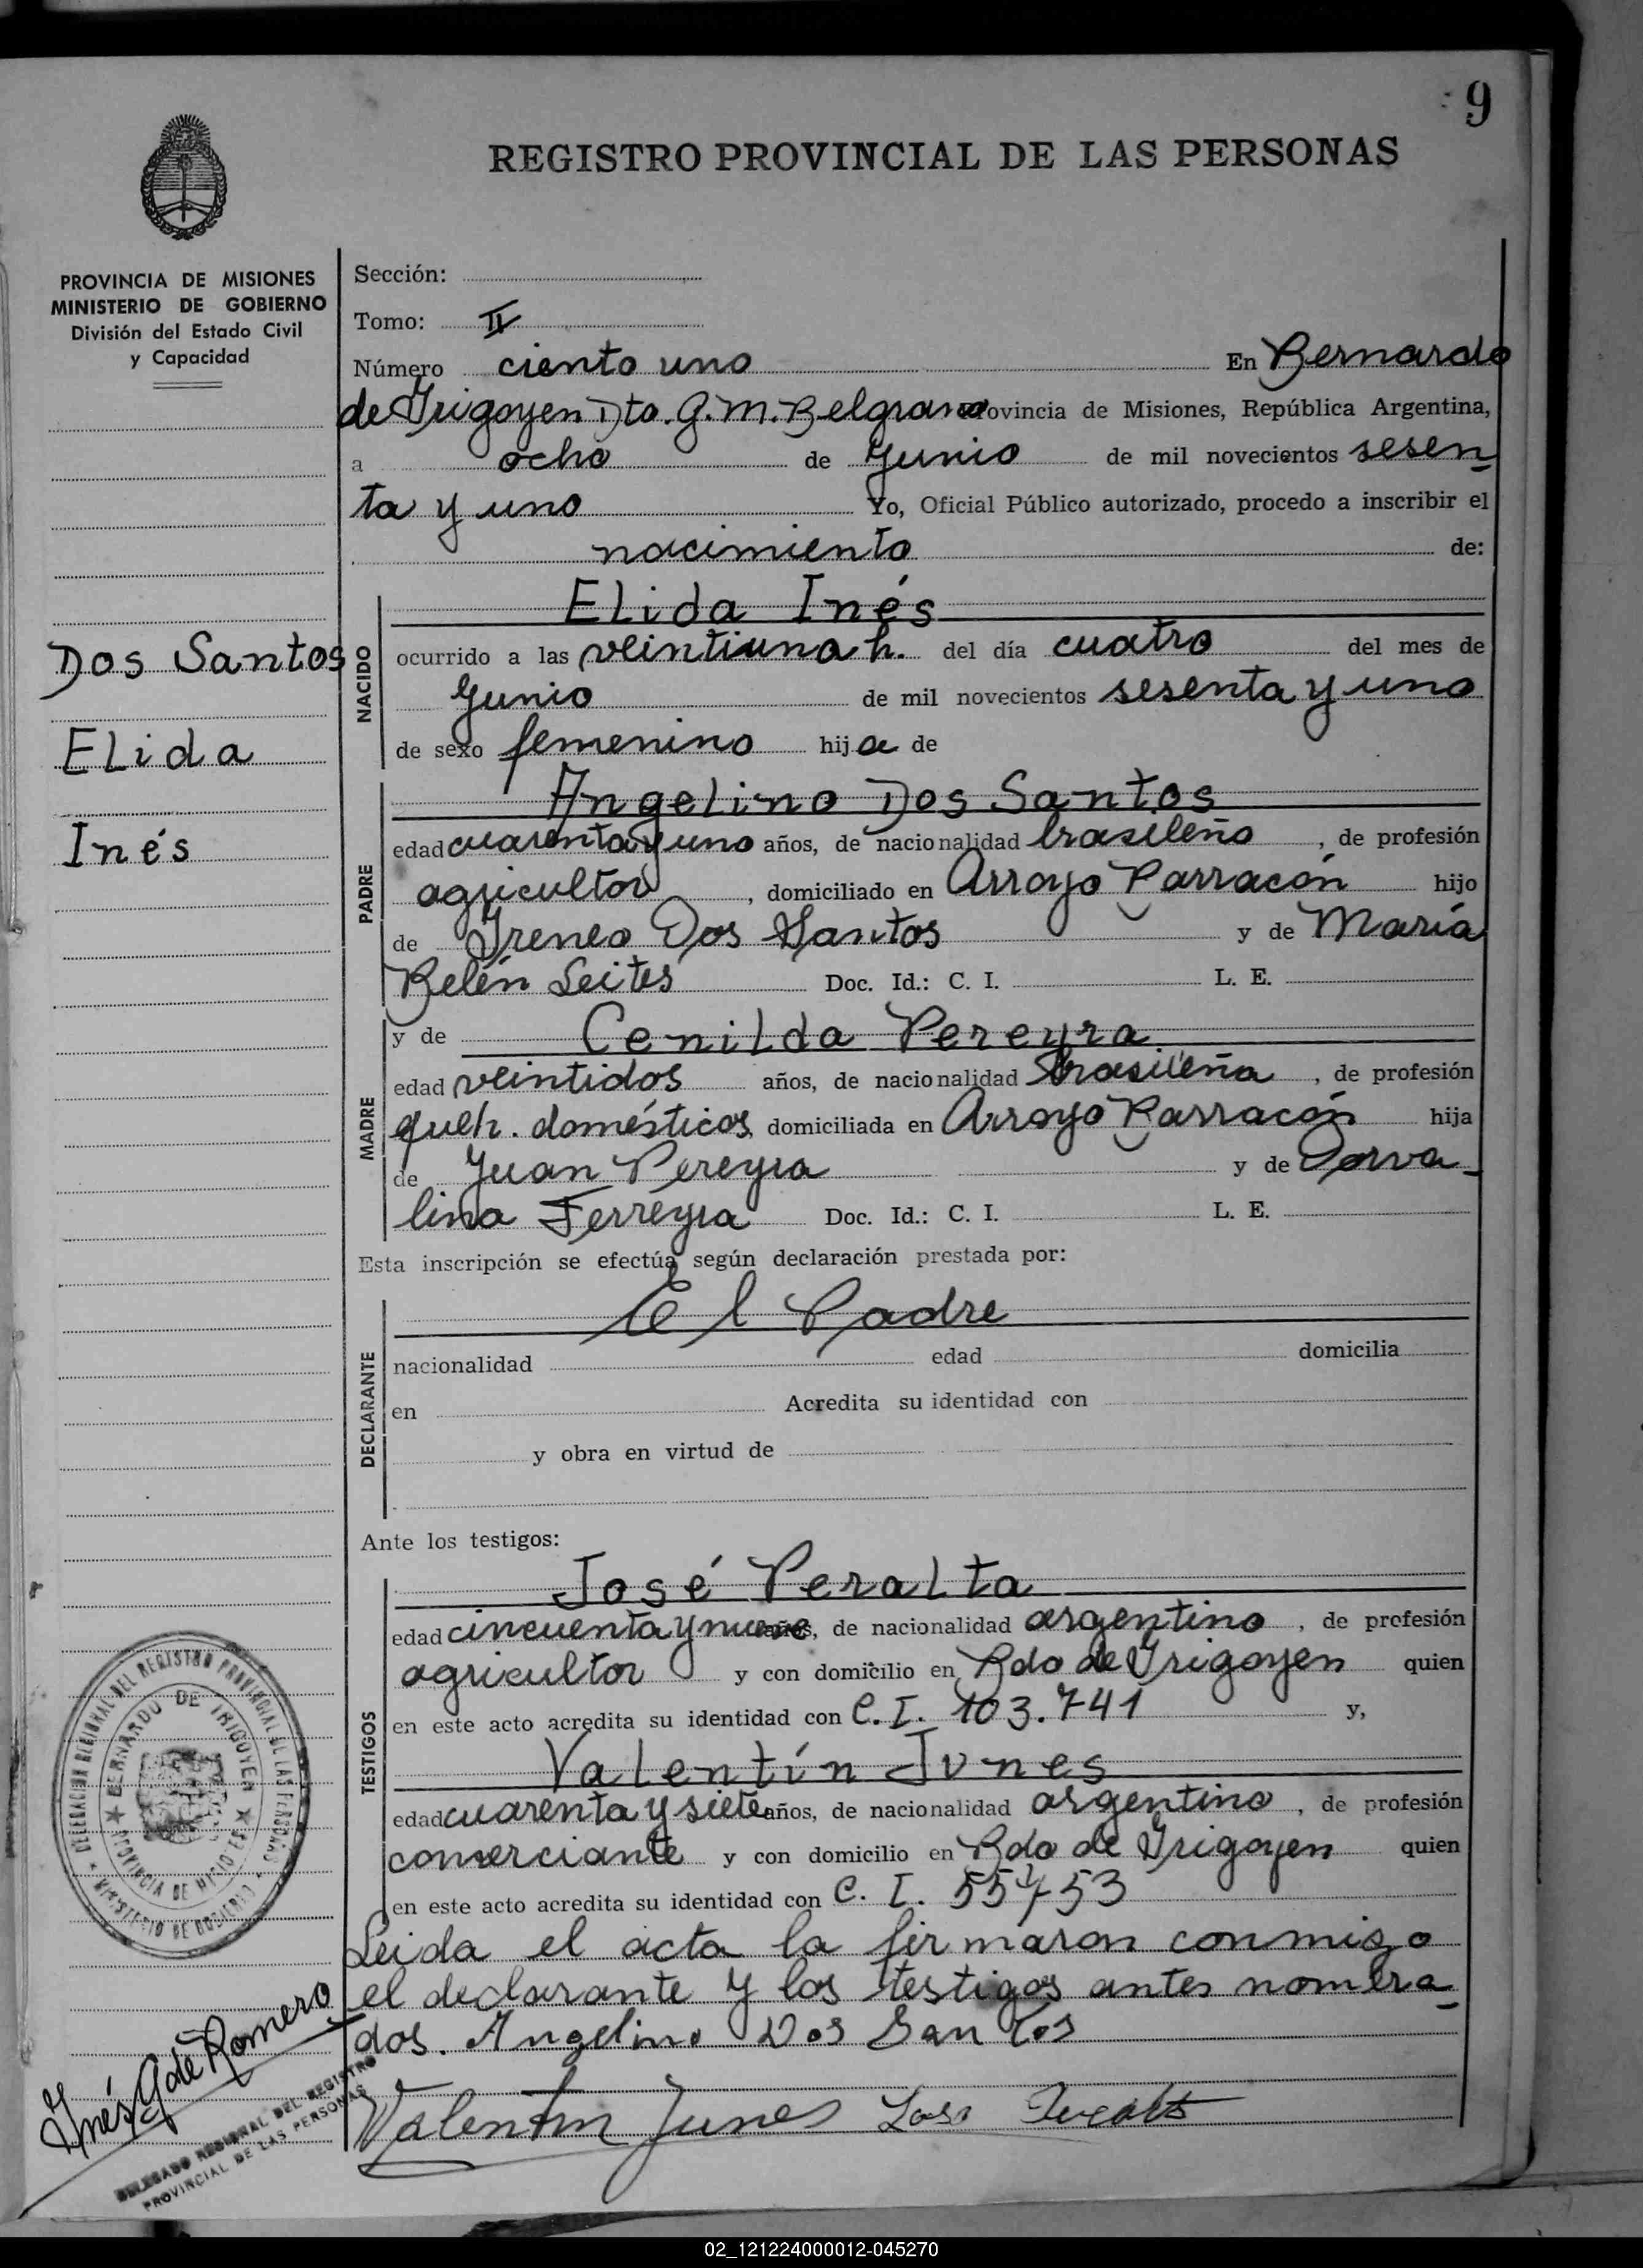 9
REGISTRO PROVINCIAL DE LAS PERSONAS
PROVINCIA DE MISIONES
MINISTERIO DE GOBIERNO
División del Estado Civil
y Capacidad
Dos Santos
Elida
Inés
Sección:
Tomo: II
Número ciento uno En Bernardo
de Irigoyen Dto. G. M. Belgrano Provincia de Misiones, República Argentina,
a ocho de Junio de mil novecientos sesen_
ta y uno Yo, Oficial Público autorizado, procedo a inscribir el
nacimiento de:
NACIDO
Elida Inés
ocurrido a las veintiuna h. del día cuatro del mes de
Junio de mil novecientos sesenta y uno
de sexo femenino hija de
PADRE
Angelino Dos Santos
edad cuarenta y uno años, de nacionalidad brasileño, de profesión
agricultor, domiciliado en Arroyo Barracón hijo
de Ireneo Dos Santos y de María
Belén Leites Doc. Id.: C. I. L. E.
MADRE
y de Cenilda Pereyra
edad veintidos años, de nacionalidad brasileña, de profesión
queh. domésticos, domiciliada en Arroyo Barracón hija
de Juan Pereyra y de Dorva_
lina Ferreyra Doc. Id.: C. I. L. E.
Esta inscripción se efectúa según declaración prestada por:
DECLARANTE
El Padre
nacionalidad edad domicilia
en Acredita su identidad con
y obra en virtud de
Ante los testigos:
TESTIGOS
José Peralta
edad cincuenta y nueve años, de nacionalidad argentino, de profesión
agricultor y con domicilio en Bdo de Irigoyen quien
en este acto acredita su identidad con C. I. 103.741 y,
Valentín Junes
edad cuarenta y siete años, de nacionalidad argentino, de profesión
comerciante y con domicilio en Bdo de Irigoyen quien
en este acto acredita su identidad con C. I. 55753
Leida el acta la firmaron conmigo
el declarante y los testigos antes nombra_
dos. Angelino Dos Santos
Valentin Junes José Peralta
DELEGACION REGIONAL DEL REGISTRO PROVINCIAL DE LAS PERSONAS
MINISTERIO DE GOBIERNO
BERNARDO DE IRIGOYEN
PROVINCIA DE MISIONES
Inés G de Romero
DELEGADO REGIONAL DEL REGISTRO
PROVINCIAL DE LAS PERSONAS
02_121224000012-045270